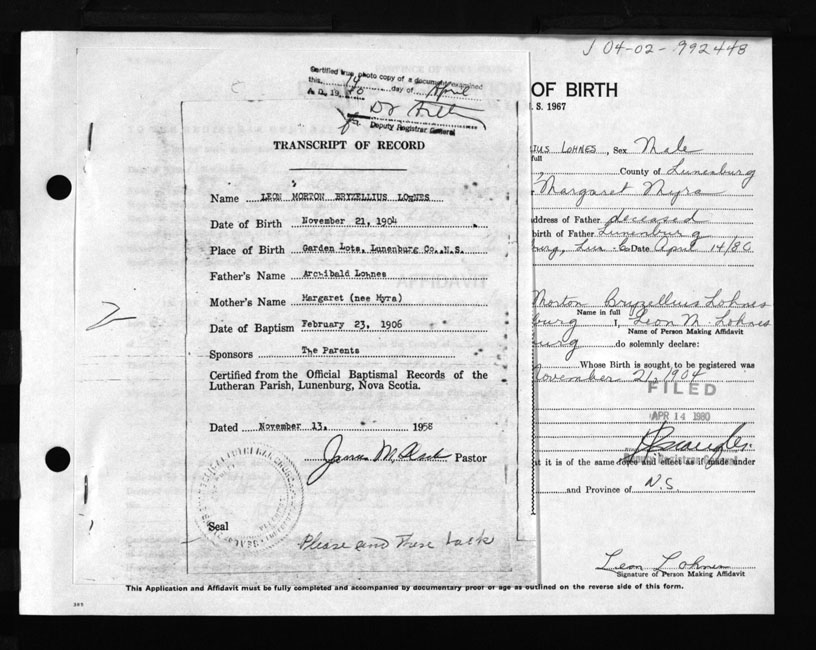 J 04-02-992448
Certified true photo copy of a document examined
this 14 day of April
A.D. 19 80
Deputy Registrar General
TRANSCRIPT OF RECORD
Name LEON MORTON BRYZELLIUS LOHNES
Date of Birth November 21, 1904
Place of Birth Garden Lots, Lunenburg Co., N.S.
Father's Name Archibald Lohnes
Mother's Name Margaret (nee Myra)
Date of Baptism February 23, 1906
Sponsors The Parents
Certified from the Official Baptismal Records of the
Lutheran Parish, Lunenburg, Nova Scotia.
Dated November 13, 1958
Pastor
Seal
Please and These back
OF BIRTH
S. 1967
IUS LOHNES, Sex Male
full
County of Lunenburg
Margaret Myra
address of Father deceased
birth of Father Lunenburg
burg, Lun. Co Date April 14/80
Morton Bryzellius Lohnes
Name in full
burg I, Leon M. Lohnes
Name of Person Making Affidavit
urg do solemnly declare:
Whose Birth is sought to be registered was
November 21, 1904
FILED
APR 14 1980
Deputy Registrar General
at it is of the same force and effect as if made under
and Province of N.S.
Leon Lohnes
Signature of Person Making Affidavit
This Application and Affidavit must be fully completed and accompanied by documentary proof of age as outlined on the reverse side of this form.